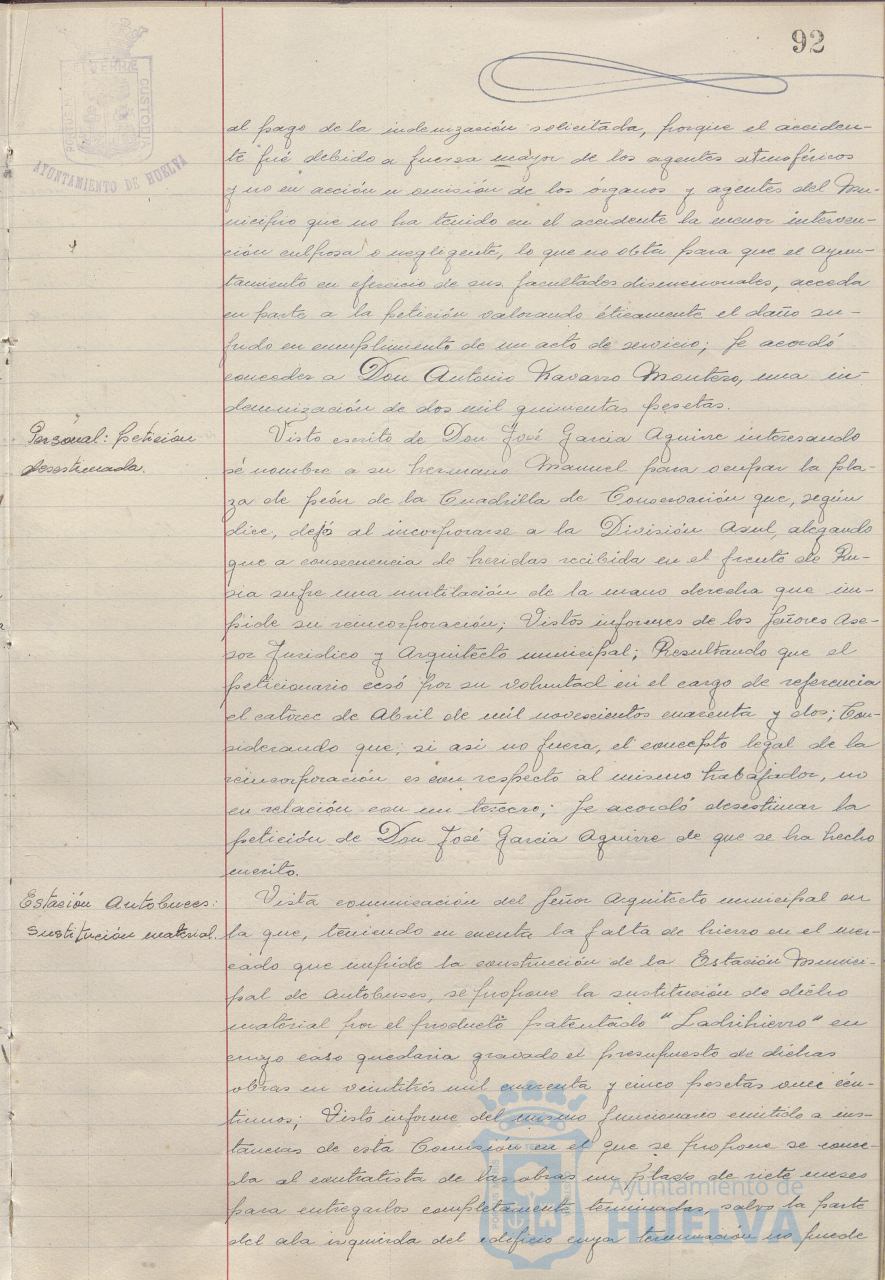 92
PORTUS MARIS ET TERRE CUSTODIA
AYUNTAMIENTO DE HUELVA
al pago de la indemnización solicitada, porque el acciden-
te fué debido a fuerza mayor de los agentes atmosféricos
y no en acción u omisión de los órganos y agentes del Mu-
nicipio que no ha tenido en el accidente la menor interven-
ción culposa o negligente, lo que no obta para que el Ayun-
tamiento en ejercicio de sus facultades discrecionales, acceda
en parte a la petición valorando éticamente el daño su-
frido en cumplimiento de un acto de servicio; Se acordó
conceder a Don Antonio Navarro Montero, una in-
demnización de dos mil quinientas pesetas.
Personal: petición
desestimada.
Visto escrito de Don José Garcia Aguirre interesando
se nombre a su hermano Manuel para ocupar la pla-
za de peón de la Cuadrilla de Conservación que, según
dice, dejó al incorporarse a la División Azul, alegando
que a consecuencia de heridas recibida en el frente de Ru-
sia sufre una mutilación de la mano derecha que im-
pide su reincorporación; Vistos informes de los Señores Ase-
sor Jurídico y Arquitecto municipal; Resultando que el
peticionario cesó por su voluntad en el cargo de referencia
el catorce de Abril de mil novecientos cuarenta y dos; Con-
siderando que, si asi no fuera, el concepto legal de la
reincorporación es con respecto al mismo trabajador, no
en relación con un tercero; Se acordó desestimar la
petición de Don José Garcia Aguirre de que se ha hecho
merito.
Estación Autobuces:
Sustitución material.
Vista comunicación del Señor Arquitecto municipal en
la que, teniendo en cuenta la falta de hierro en el mer-
cado que impide la construcción de la Estación Munici-
pal de Autobuses, se propone la sustitución de dicho
material por el producto patentado "Ladrihierro" en
cuyo caso quedaria gravado el presupuesto de dichas
obras en veintitrés mil cuarenta y cinco pesetas once cén-
timos; Visto informe del mismo funcionario emitido a ins-
tancias de esta Comisión en el que se propone se conce-
da al contratista de las obras un plazo de siete meses
para entregarlos completamente terminadas, salvo la parte
del ala izquierda del edificio cuya terminación no puede
Ayuntamiento de
HUELVA